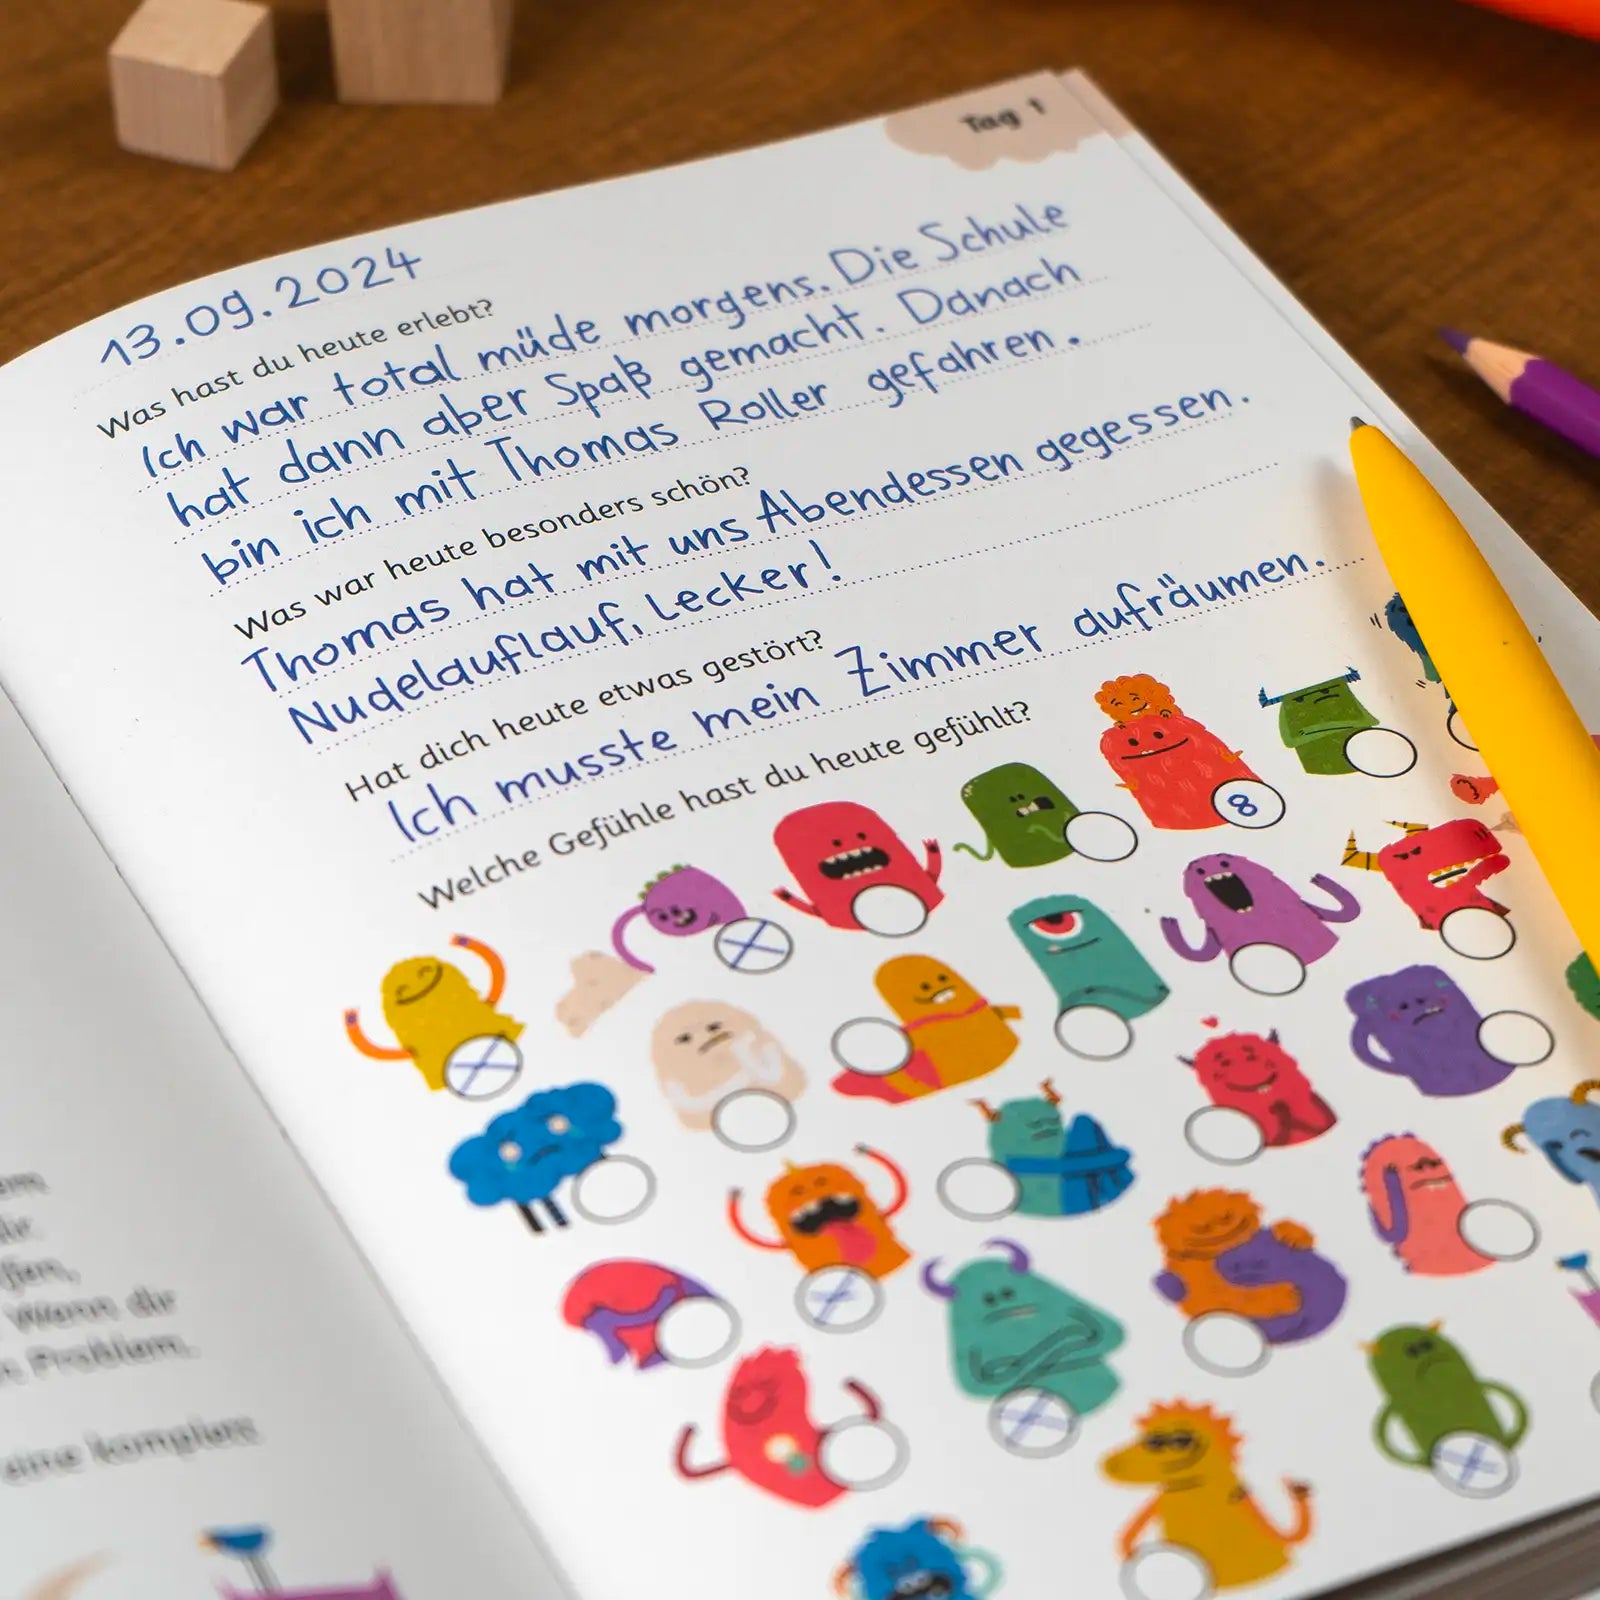 Tag 1
13.09.2024
Was hast du heute erlebt?
Ich war total müde morgens. Die Schule
hat dann aber Spaß gemacht. Danach
bin ich mit Thomas Roller gefahren.
Was war heute besonders schön?
Thomas hat mit uns Abendessen gegessen.
Nudelauflauf, Lecker!
Hat dich heute etwas gestört?
Ich musste mein Zimmer aufräumen.
Welche Gefühle hast du heute gefühlt?
8
Wenn dir
Problem.
eine komplett